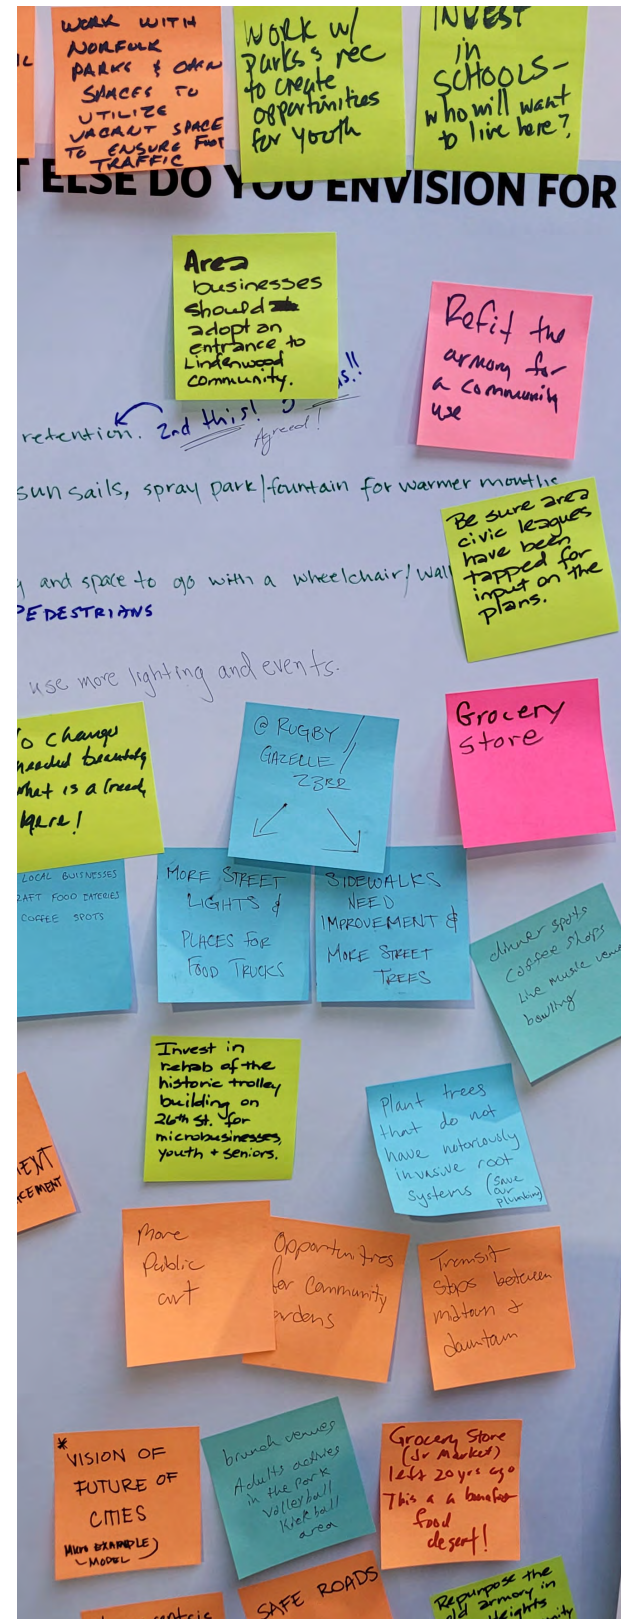 WORK WITH
NORFOLK
PARKS & OPEN
SPACES TO
UTILIZE
VACANT SPACE
TO ENSURE FOOT
TRAFFIC
WORK W/
Parks & rec
to create
opportunities
for youth
INVEST
in
SCHOOLS-
who will want
to live here?
T ELSE DO YOU ENVISION FOR
Area
businesses
should
adopt an
entrance to
Lindenwood
community.
Refit the
armory for
a community
use
retention. 2nd this!
Agreed!
sun sails, spray park/fountain for warmer months
Be sure area
civic leagues
have been
tapped for
input on the
plans.
and space to go with a wheelchair/
PEDESTRIANS
use more lighting and events.
o change
needed beautify
what is already
here!
@ RUGBY/
GAZELLE/
23RD
Grocery
Store
LOCAL BUISNESSES
AFT FOOD EATERIES
COFFEE SPOTS
MORE STREET
LIGHTS &
PLACES FOR
FOOD TRUCKS
SIDEWALKS
NEED
IMPROVEMENT &
MORE STREET
TREES
dinner spots
Coffee shops
Live music venu
bowling
Invest in
rehab of the
historic trolley
building on
26th St. for
microbusinesses,
youth + seniors.
Plant trees
that do not
have notoriously
invasive root
systems (save
our
plumbing)
ENT
CEMENT
More
Public
art
Opportunities
for Community
ardens
Transit
stops between
midtown &
downtown
* VISION OF
FUTURE OF
CITIES
MICRO EXAMPLE
MODEL
brunch venues
Adults activies
in the park
Volleyball
Kickball
area
Grocery Store
(Jr Market)
left 20 yrs ago
This a a
food
desert!
SAFE ROADS
Repurpose the
old armory in